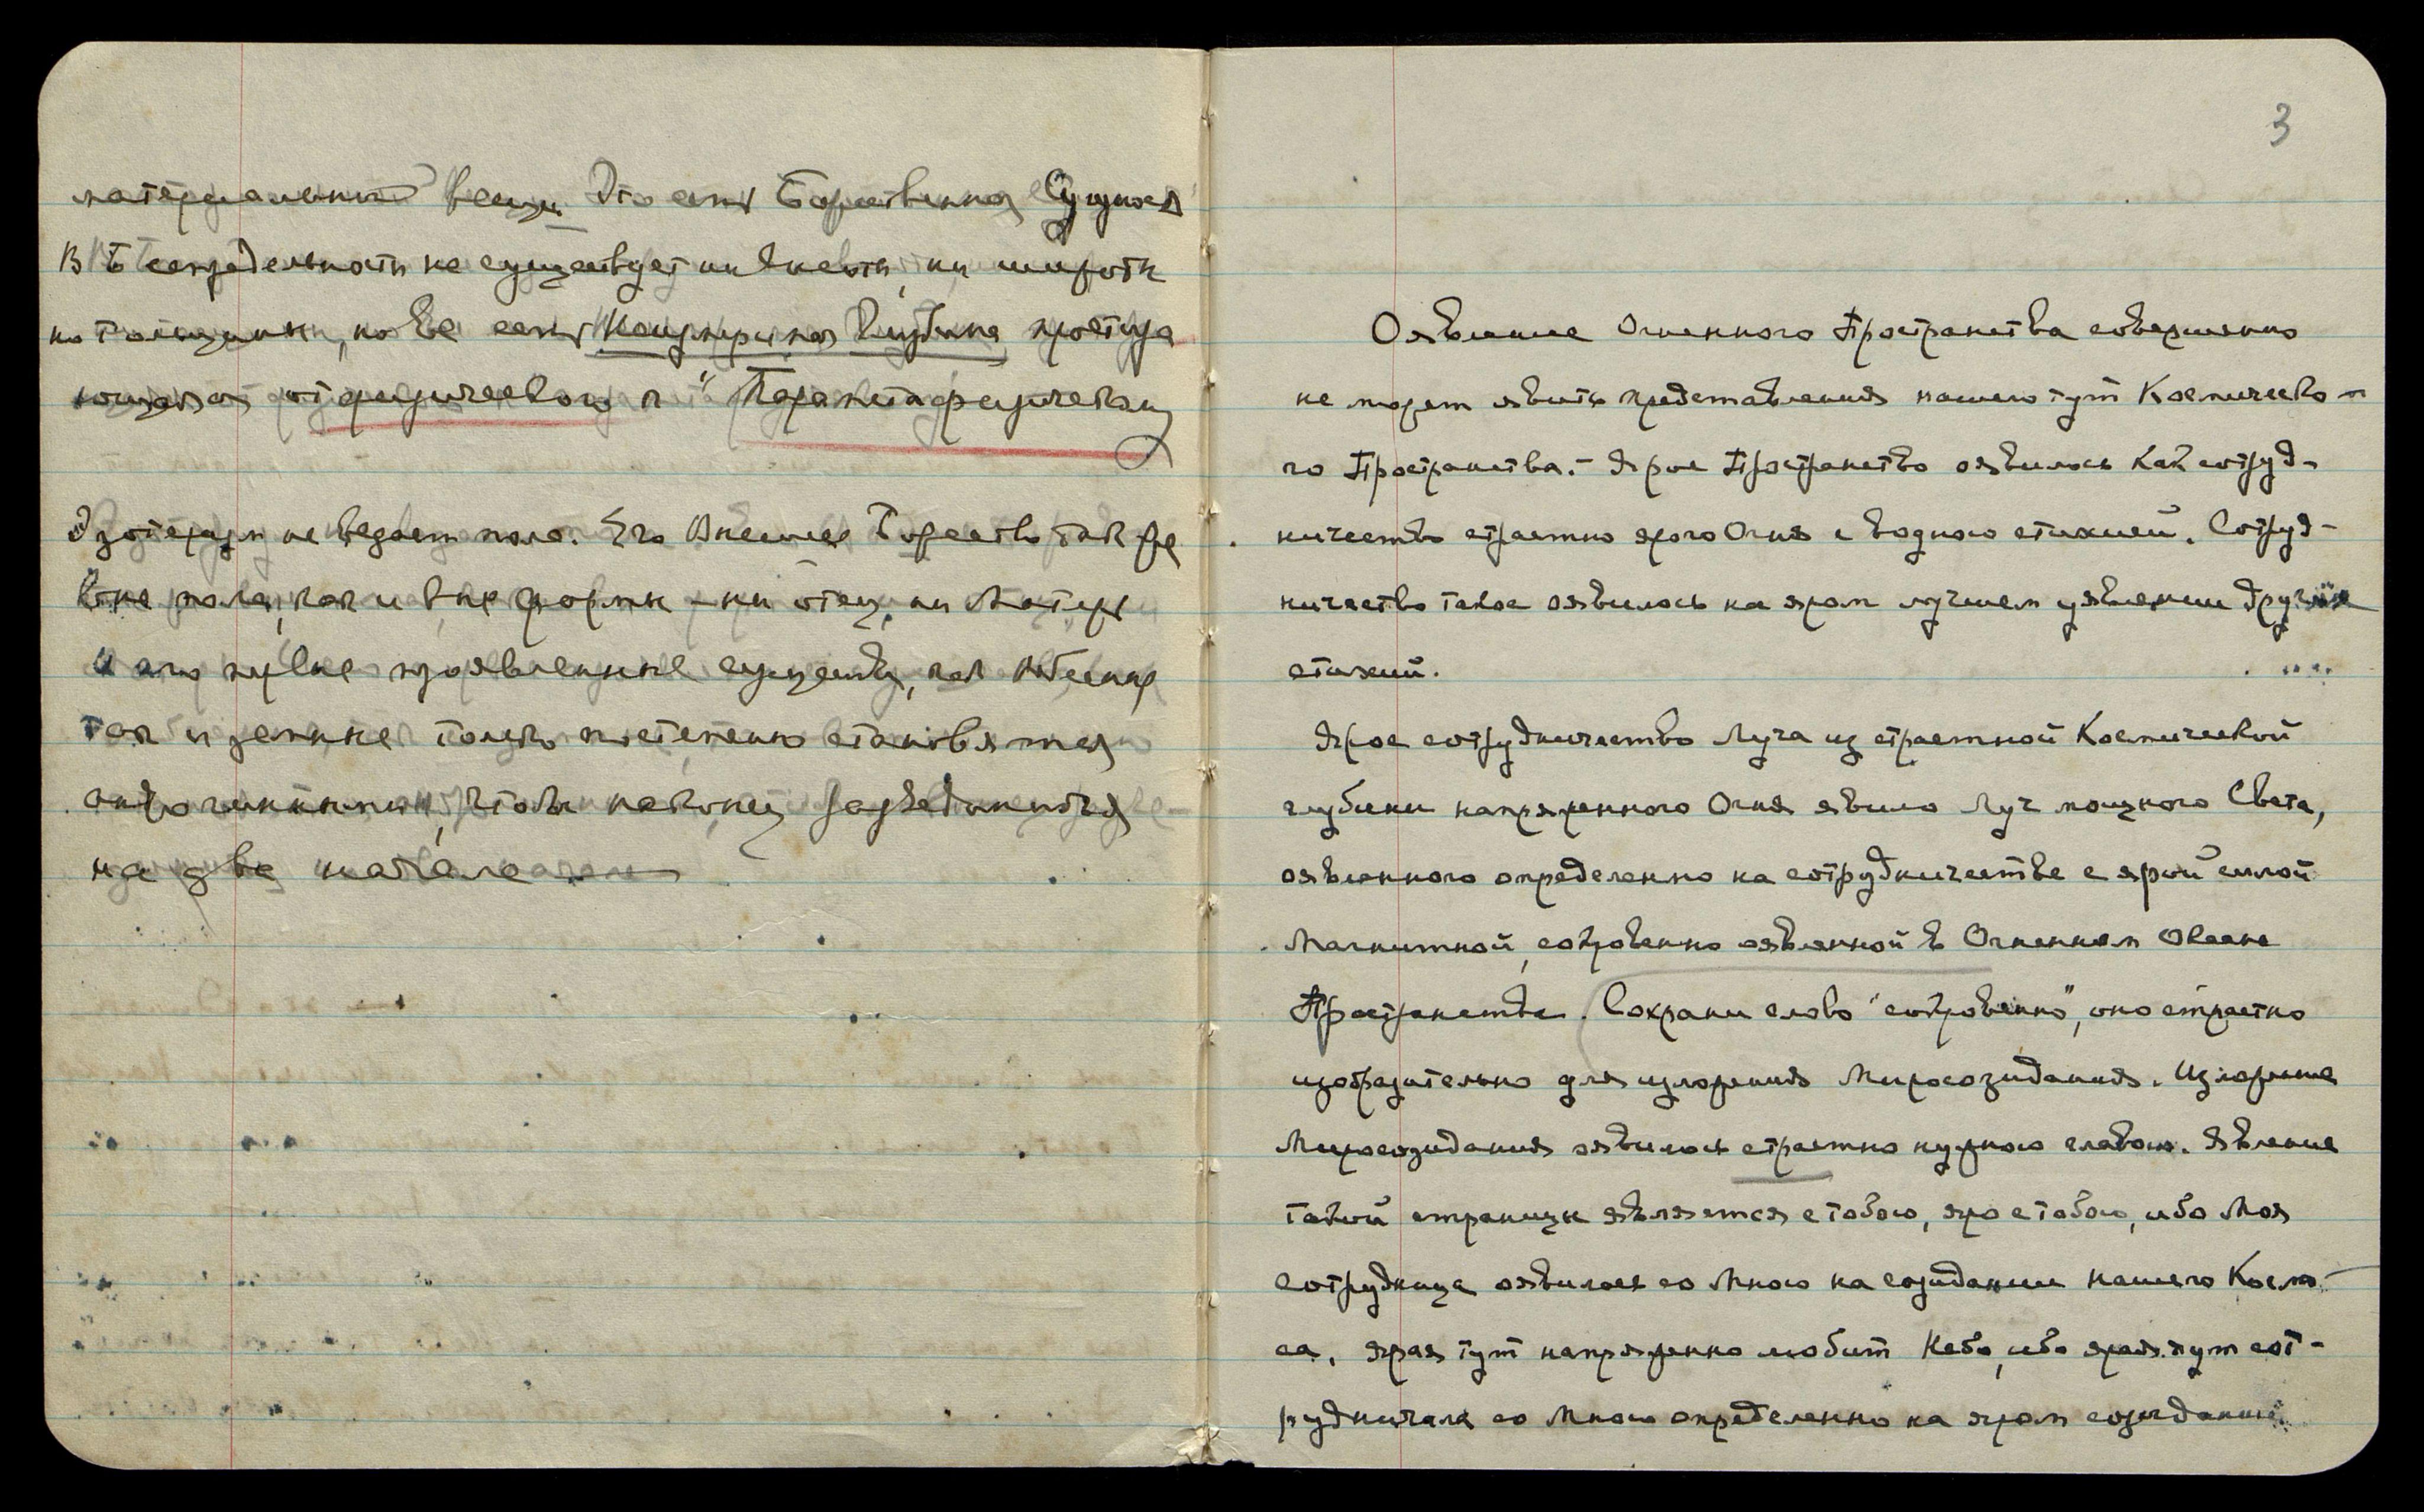 материальные вещи. Это есть Божественная Сущность
В Беспредельности не существует ни высоты, ни широты
ни толщины, но все есть
от физического к "Параметафизическому
Эзотеризм не ведает пола. Его Высшее Божество так же
вне пола, как и вне формы - ни отец, ни Матерь
и его первые проявленные существа, как небесные
так и земные только постепенно становятся
андрогинными, чтобы наконец разъединиться
на два начала
3
Оявление Огненного Пространства совершенно
не может явить представления нашего тут Космическо-
го Пространства. - Ярое Пространство оявилось как сотруд-
ничество страстно ярого Огня с водною стихией. Сотруд-
ничество такое оявилось на яром лучшем уявлении других
стихий.
Ярое сотрудничество Луча из страстной Космической
глубины напряженного Огня явило Луч мощного Света,
оявленного определенно на сотрудничестве с ярой силой
Магнитной, сокровенно оявленной в Огненном Океане
Пространства. Сохрани слово "сокровенно", оно страстно
изобразительно для изложения Миросозидания. Изложение
Миросозидания оявилось страстно нужною главою. Явление
такой страницы является с тобою, яро с тобою, ибо Моя
сотрудница оявилась со Мною на созидании нашего Космо-
са. Ярая тут напряженно любит Небо, ибо ярая тут сот-
рудничала со Мною определенно на яром созидании